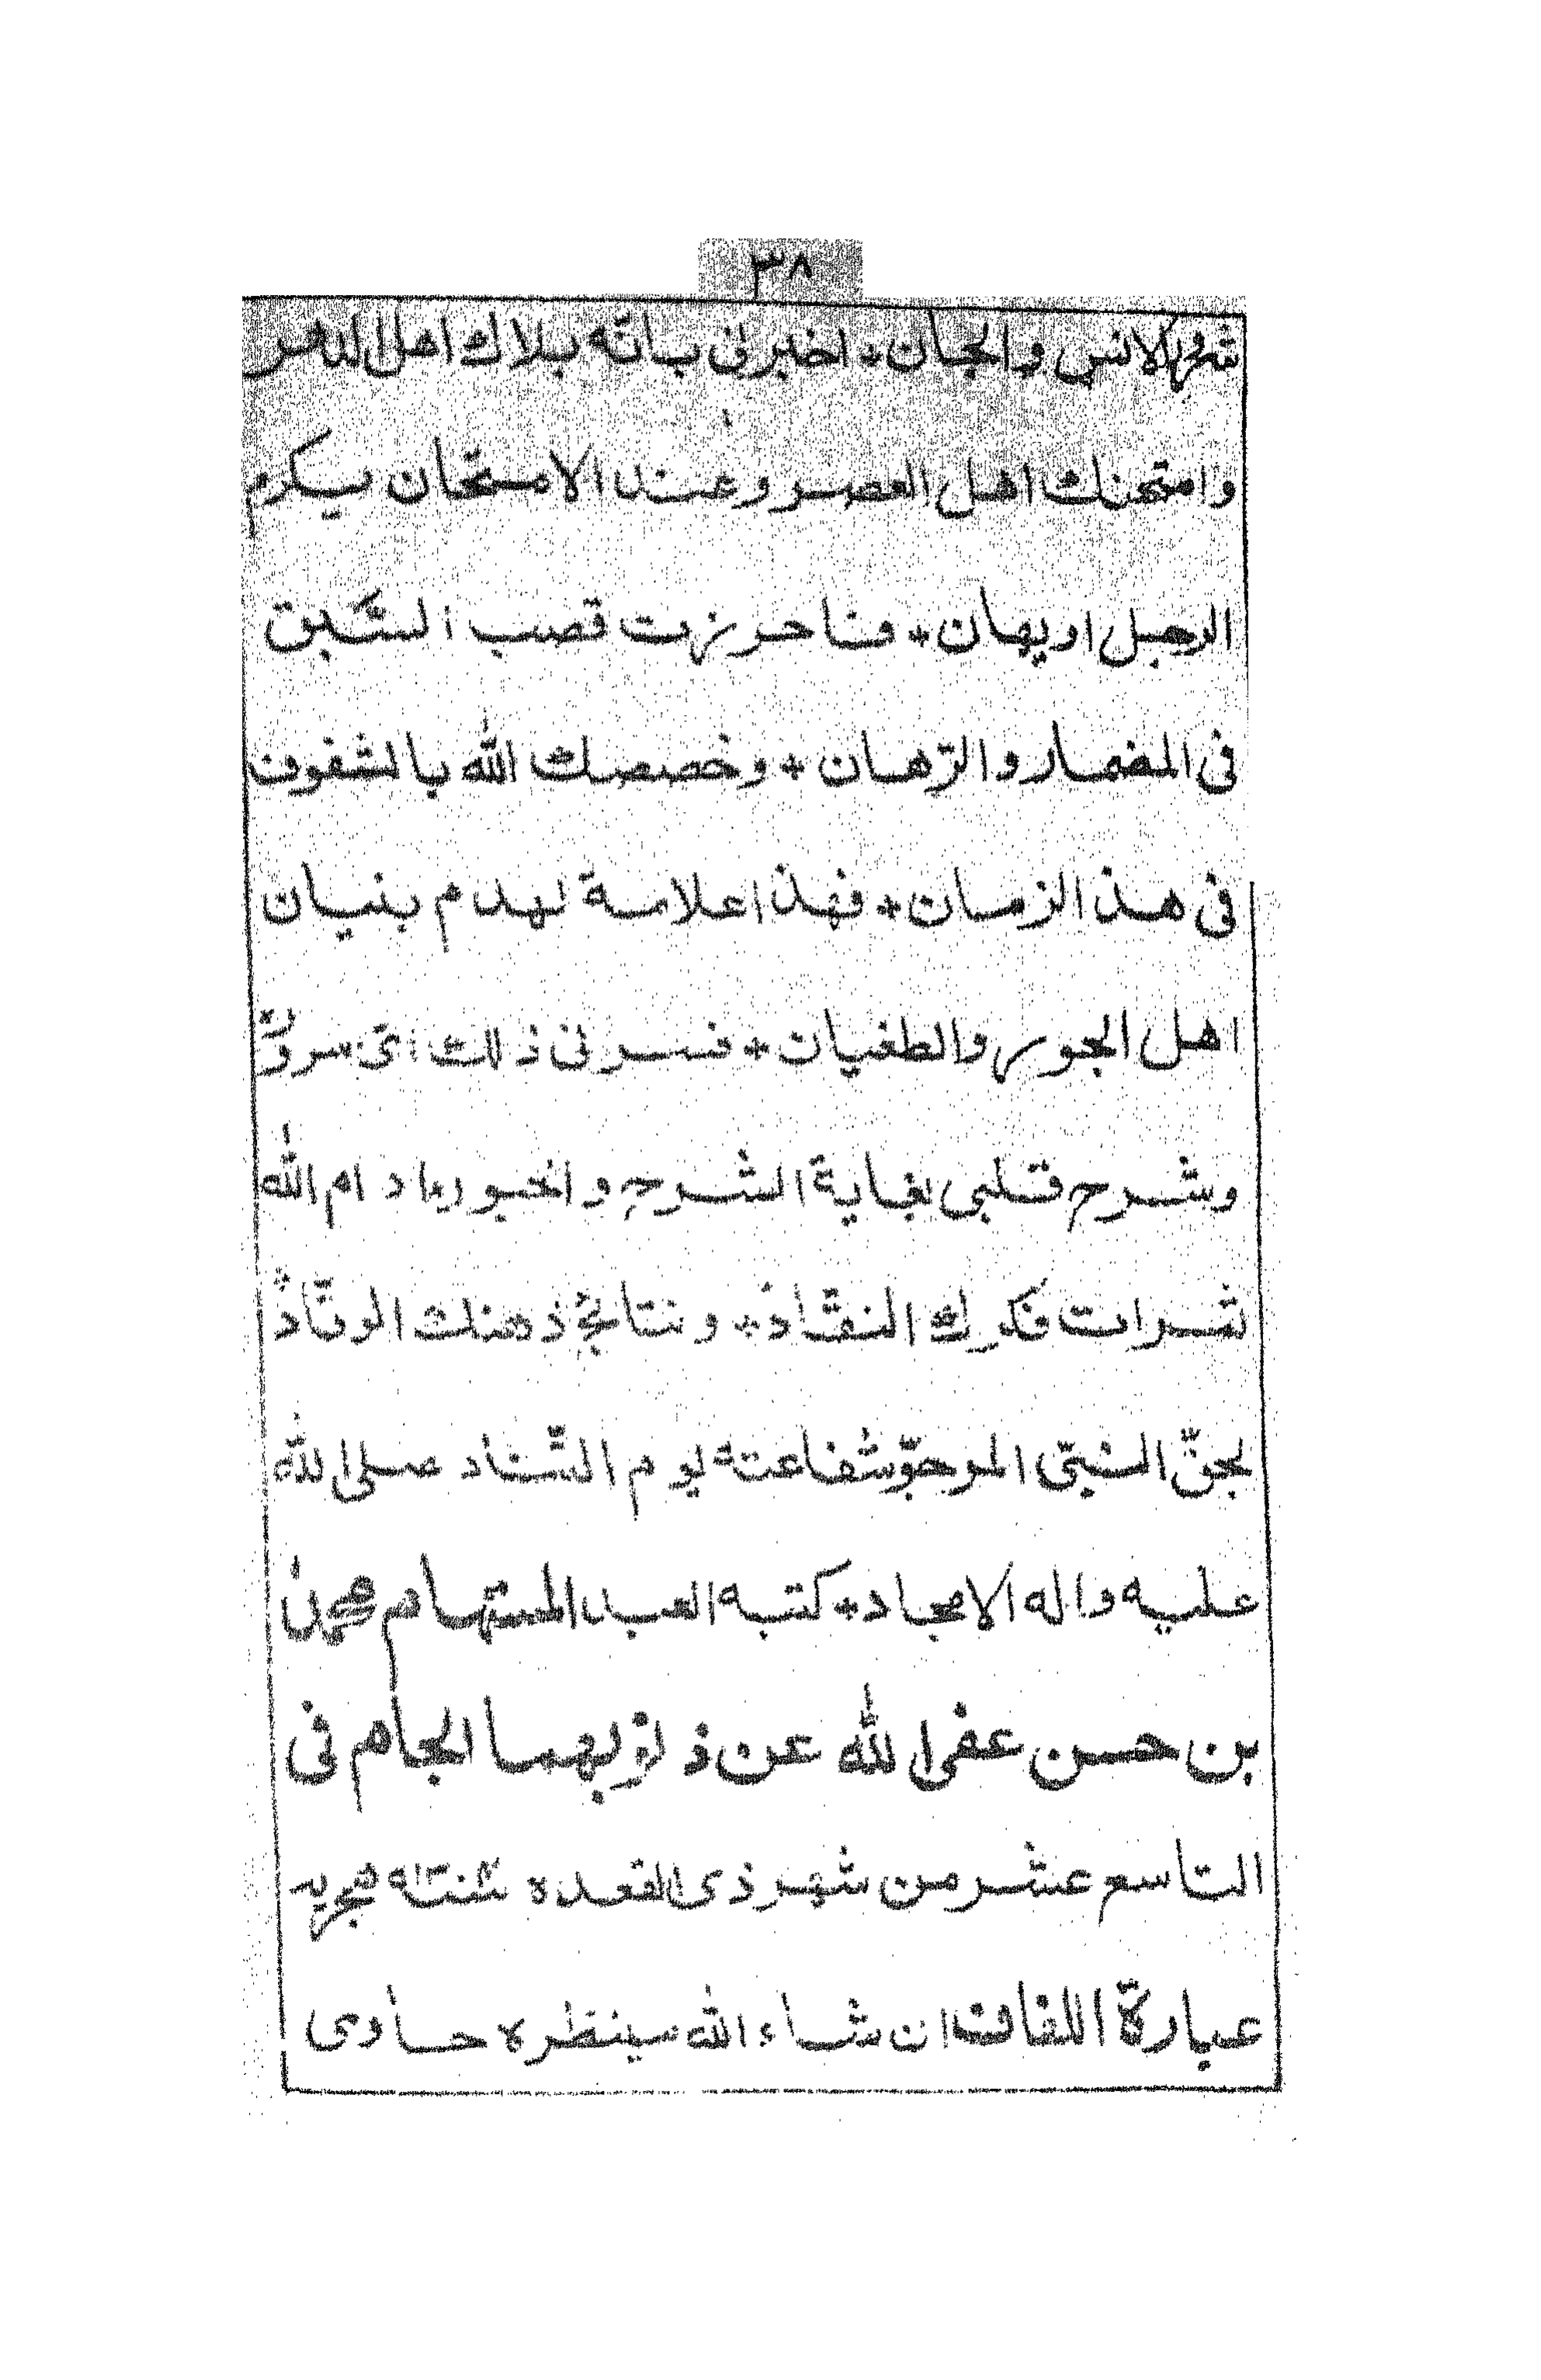 ٣٨
شرور الانس والجان + اخبرنى بانه بلاك اهل الدهر
وامتحنك اهل العصر وعند الامتحان يكرم
الرجل او يهان + فاحرزت قصب السّبق
فى المضمار والرّهان + وخصصك الله بالشفوف
فى هذ الزمان + فهذا علامة لهدم بنيان
اهل الجور والطغيان + فسرنى ذلك اىّ سرور
وشرح قلبى بغاية الشرح والحبور ادام الله
ثمرات فكرك النقّاد + ونتائج ذهنك الوقّاد
بحقّ النبىّ المرجوّ شفاعته يوم التّناد صلى الله
عليه واله الامجاد + كتبه العبد المستهام محمد
بن حسن عفى الله عن ذنوبهما الجام فى
التاسع عشر من شهر ذى القعده هجريه
عبارة اللفافة ان شاء الله سينظره حاوى